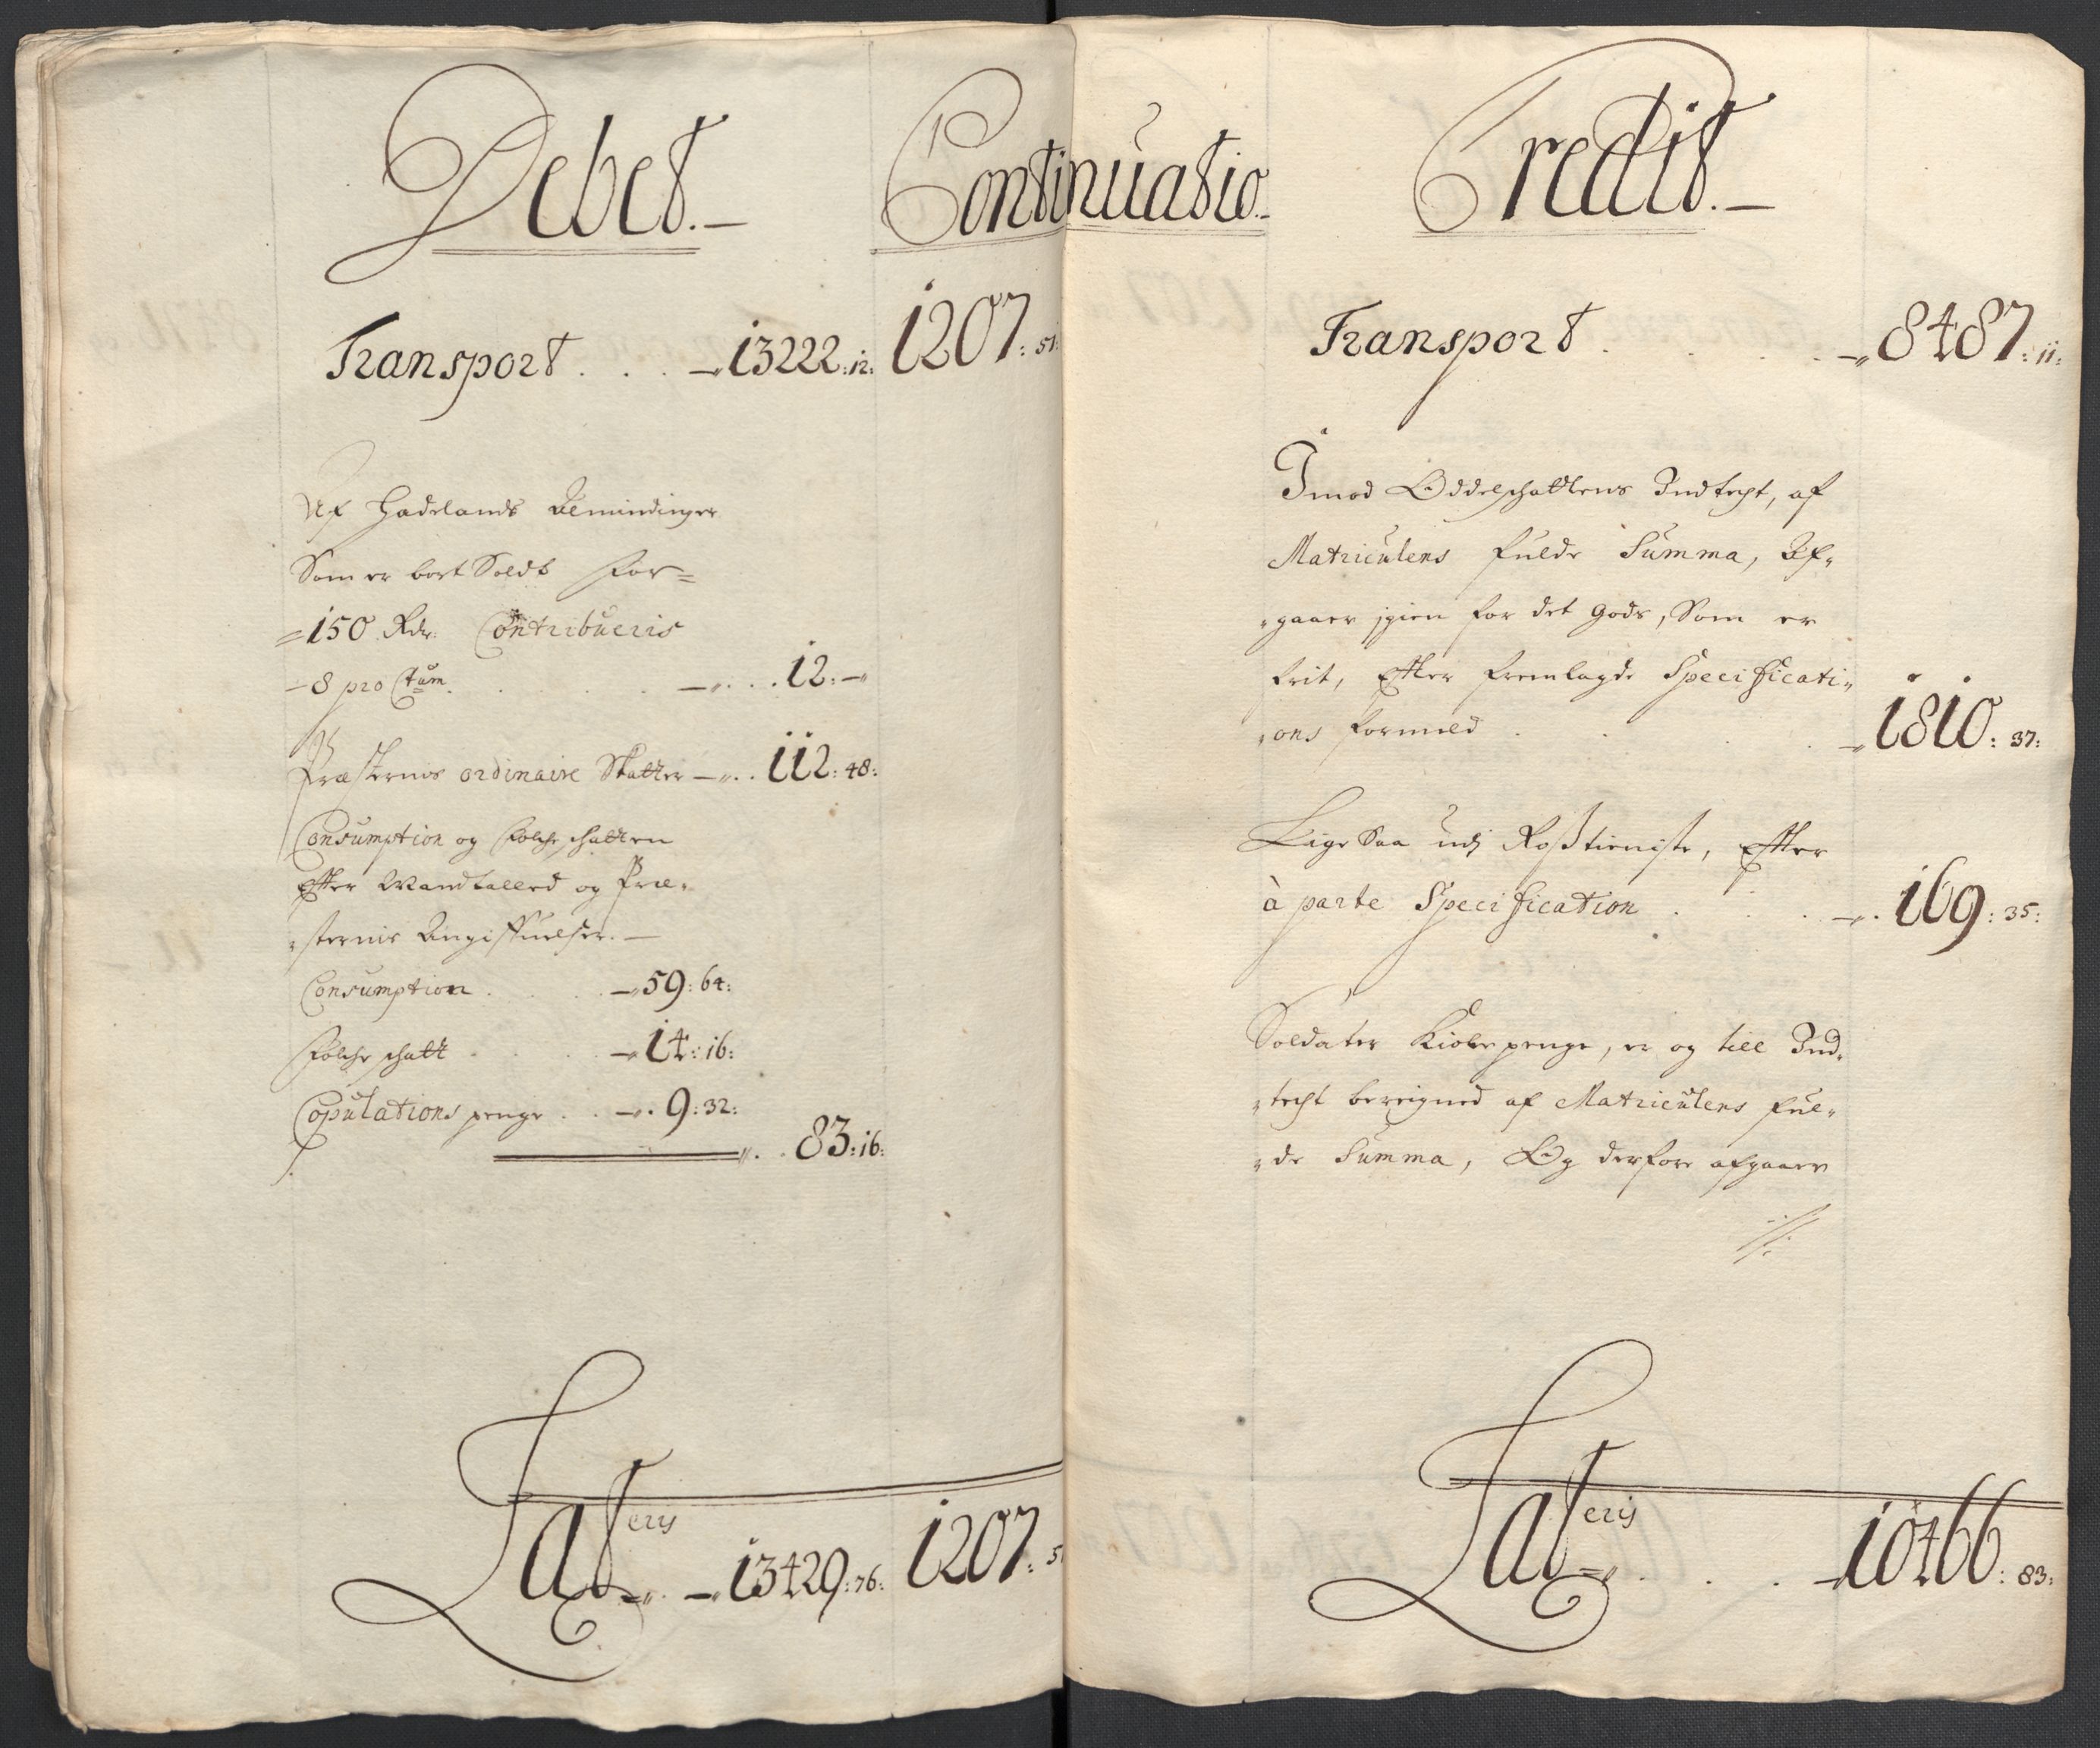 Debet. –
Continuatio. –
Transport . . . – 13222: 12: 1207: 51:
Af Hadelands Almindinger
Som er bort Soldt for =
= 150 Rdr: Contribueris
– 8 pro Ctum . . . – „ . . 12: –
Præsternis ordinaire Skatter – „ . . 112: 48:
Consumption og folcke schatten
Efter Mandtalled og Præ„
„sternis Angiffuelser. –
Consumption . . . – 59: 64:
folche schatt . . . – 14: 16:
Copulations penge . . – „ . 9: 32:
„ . . 83: 16:
Lateris – „ . – 13429: 76: 1207: 51
Credit. –
Transport . . . . – „ 8487: 11:
Imod Oddelschattens Indtecht, af
Matriculens fulde Summa, Af„
„gaaer igien for det gods, Som er
frit, Efter fremlagde Specificati„
„ons formeld . . . . – 1810: 37:
Lige Saa udj Rosstieniste, Efter
à parte Specification . . . – „ . 169: 35:
Soldater Kiole penge, er og till Ind„
„techt bereigned af Matriculens ful„
„de Summa, Og derfore afgaaer
Lateris – „ . . . – 10466: 83: